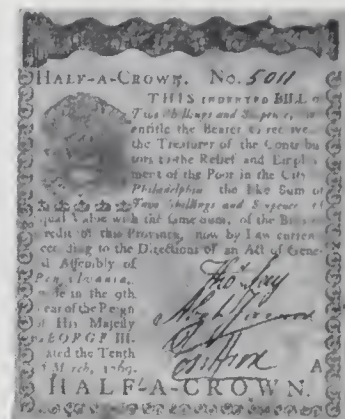 HALF-A-CROWN. No. 5011
THIS INDENTED BILL
Two Shillings and Sixpence,
entitle the Bearer to receive
the Treasurer of the Contribu
tors to the Relief and Employ
ment of the Poor in the City
Philadelphia the like Sum of
Two Shillings and Sixpence
qual Value with the same Sum, of the Bills
redit of this Province, now by Law curren
ccording to the Directions of an Act of Gene
al Assembly of
Pennsylvania,
in the 9th
ear of the Reign
of His Majesty
GEORGE III.
ated the Tenth
March, 1769.
A
HALF-A-CROWN.